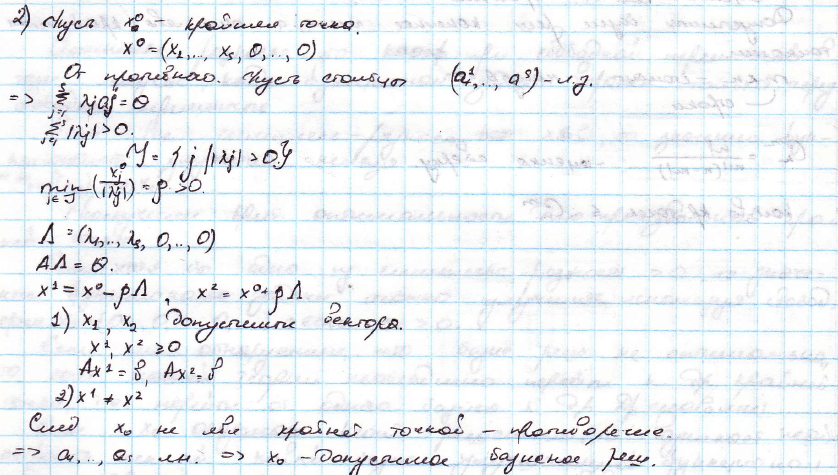 2) Пусть x⁰ - крайняя точка.
x⁰ = (x₁,.., xₛ, 0,.., 0)
От противного. Пусть столбцы (a¹,.., aˢ) - л.з.
=> Σ λj aj = Θ
Σ |λj| > 0.
Y = { j | |λj| > 0 }
min j∈Y (xj⁰ / |λj|) = ρ > 0.
Λ = (λ₁,.., λₛ, 0,.., 0)
AΛ = Θ.
x¹ = x⁰ - ρΛ , x² = x⁰ + ρΛ
1) x₁, x₂ допустимые вектора.
x¹, x² ≥ 0
Ax¹ = b, Ax² = b
2) x¹ ≠ x²
След x₀ не явл крайней точкой - противоречие.
=> a₁,.., aₛ лн. => x₀ - допустимое базисное реш.